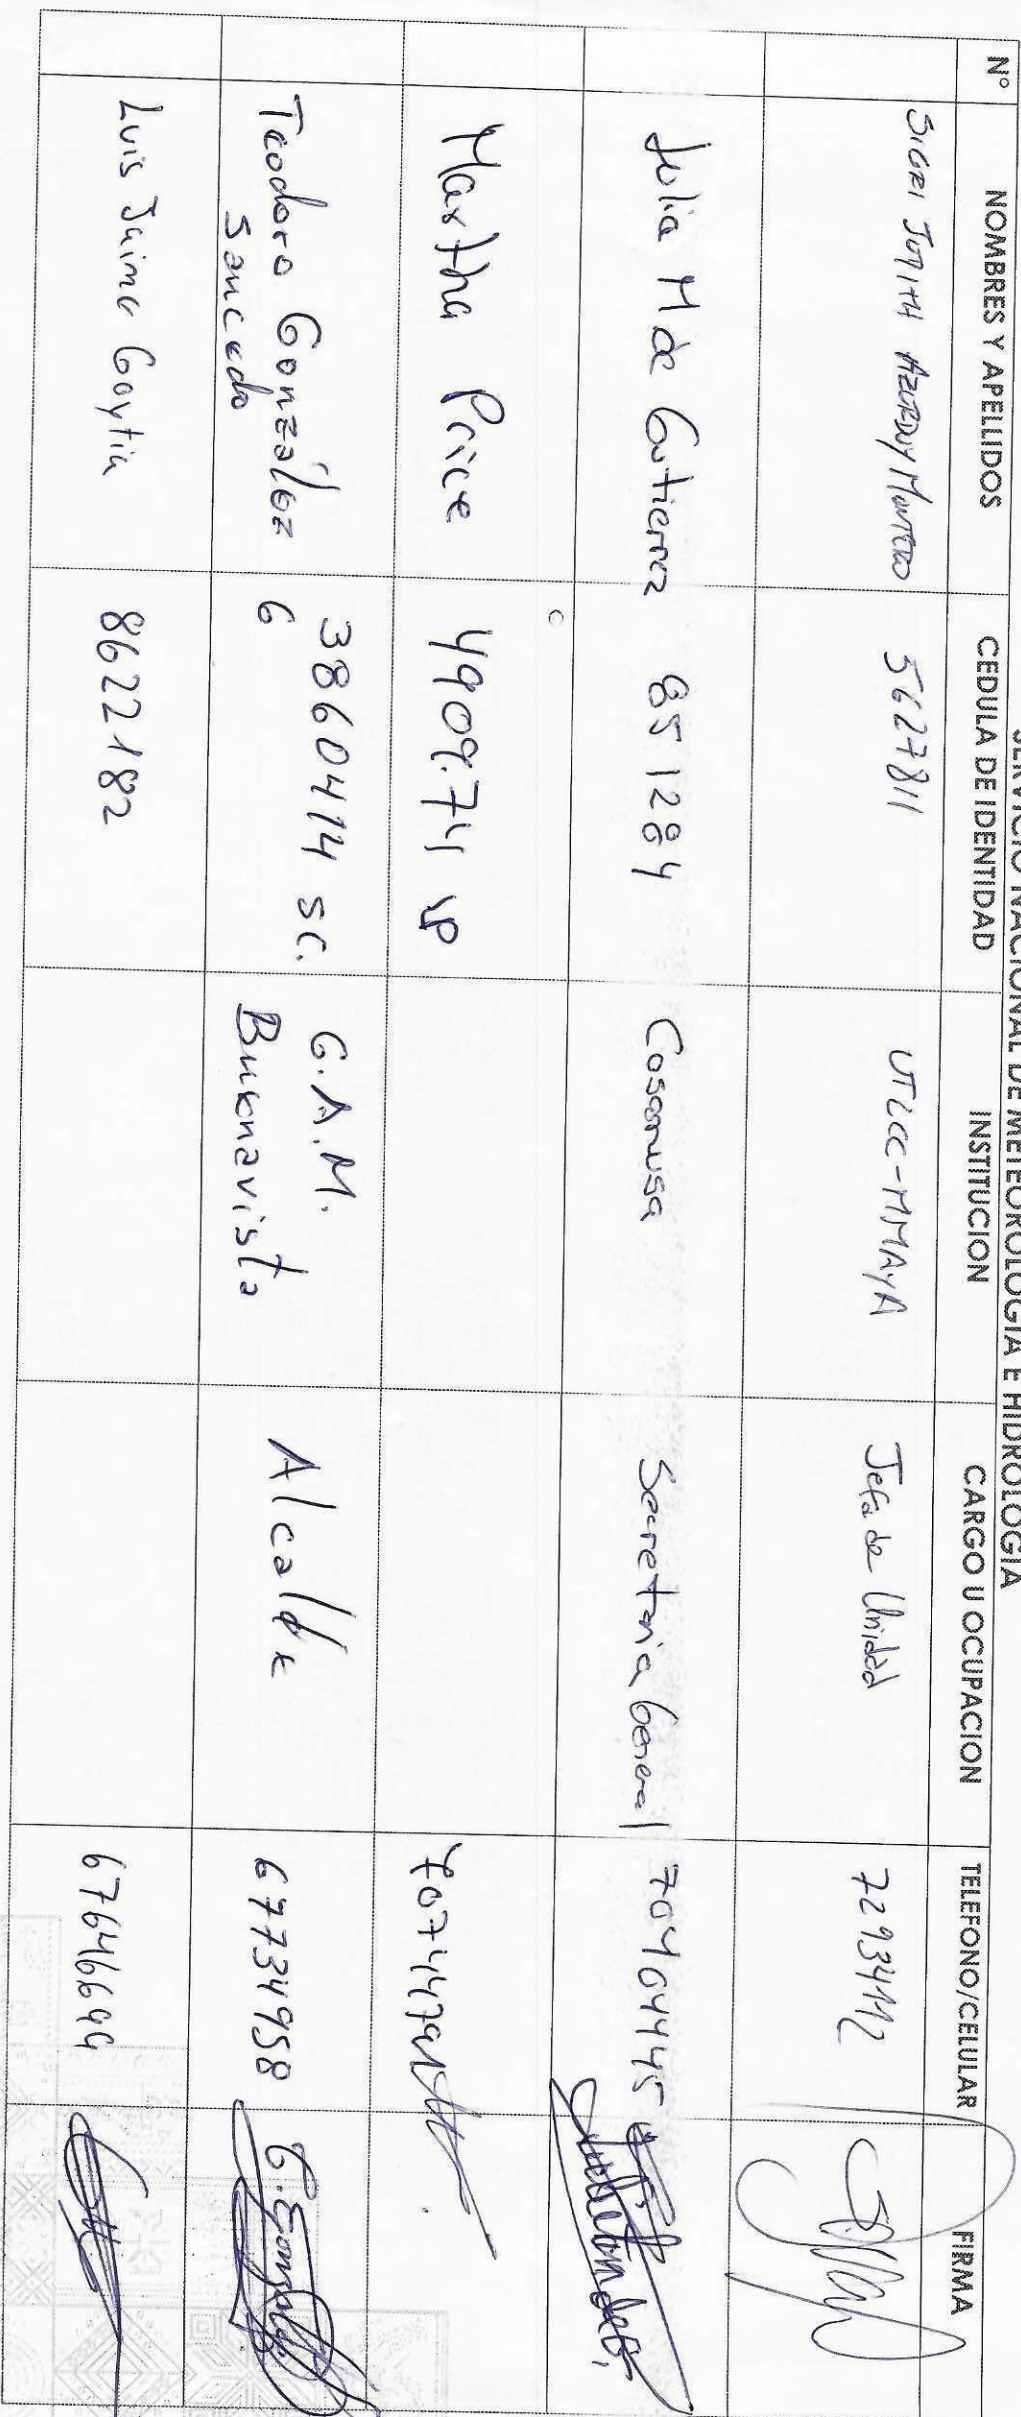 SERVICIO NACIONAL DE METEOROLOGIA E HIDROLOGIA
N° NOMBRES Y APELLIDOS CEDULA DE IDENTIDAD INSTITUCION CARGO U OCUPACION TELEFONO/CELULAR FIRMA
Azurduy Montero 5627811 UTLCC-MMAyA Jefa de Unidad 72934112
Julia M de Gutierrez 851284 Secretaria General 70404445
Martha Price 490974 LP
Teodoro González 3860414 SC. G.A.M. Alcalde 67734958
Saucedo 6 Buenavista
Luis Jaime Goytia 8622182 67646699